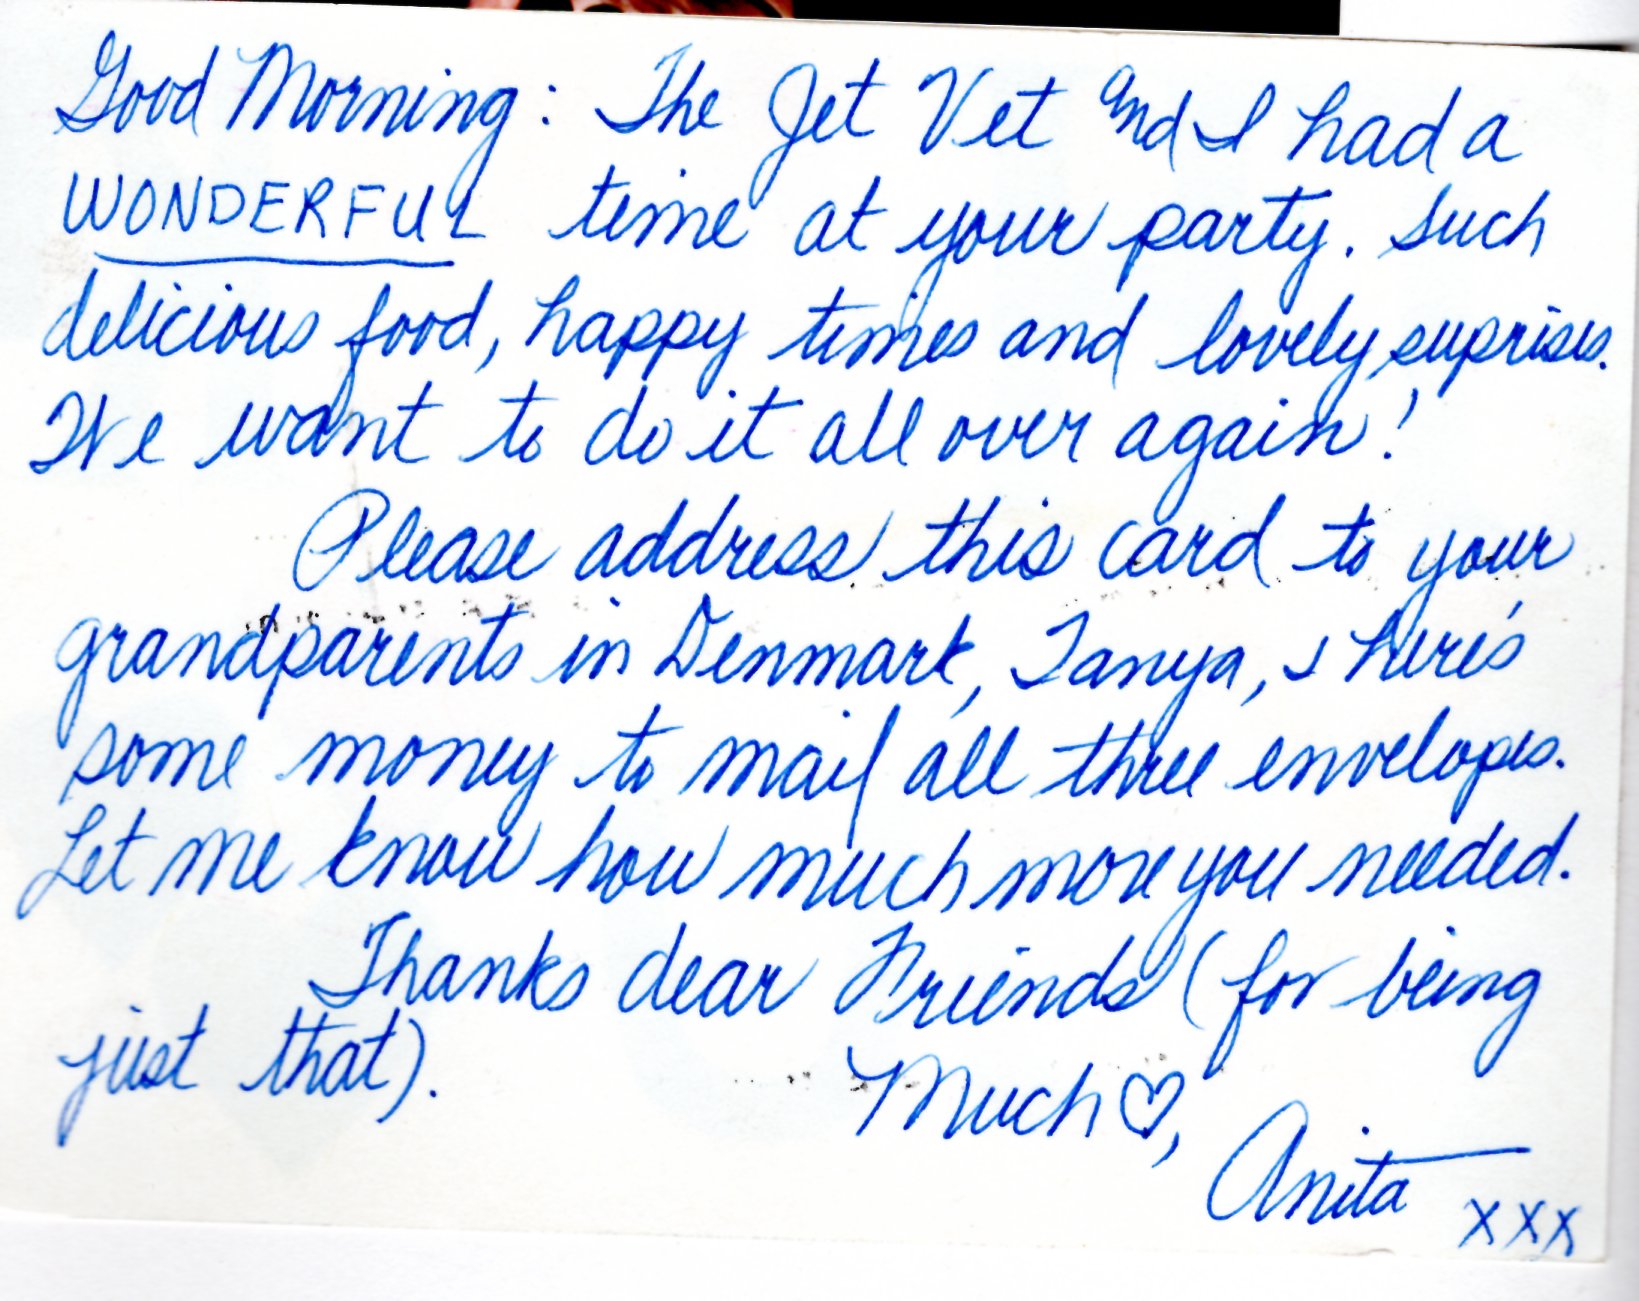 Good Morning: The Jet Vet and I had a
WONDERFUL time at your party. Such
delicious food, happy times and lovely suprises.
We want to do it all over again!
Please address this card to your
grandparents in Denmark, Tanya, & here's
some money to mail all three envelopes.
Let me know how much more you needed.
Thanks dear Friends (for being
just that).
Much ♡,
Anita
xxx